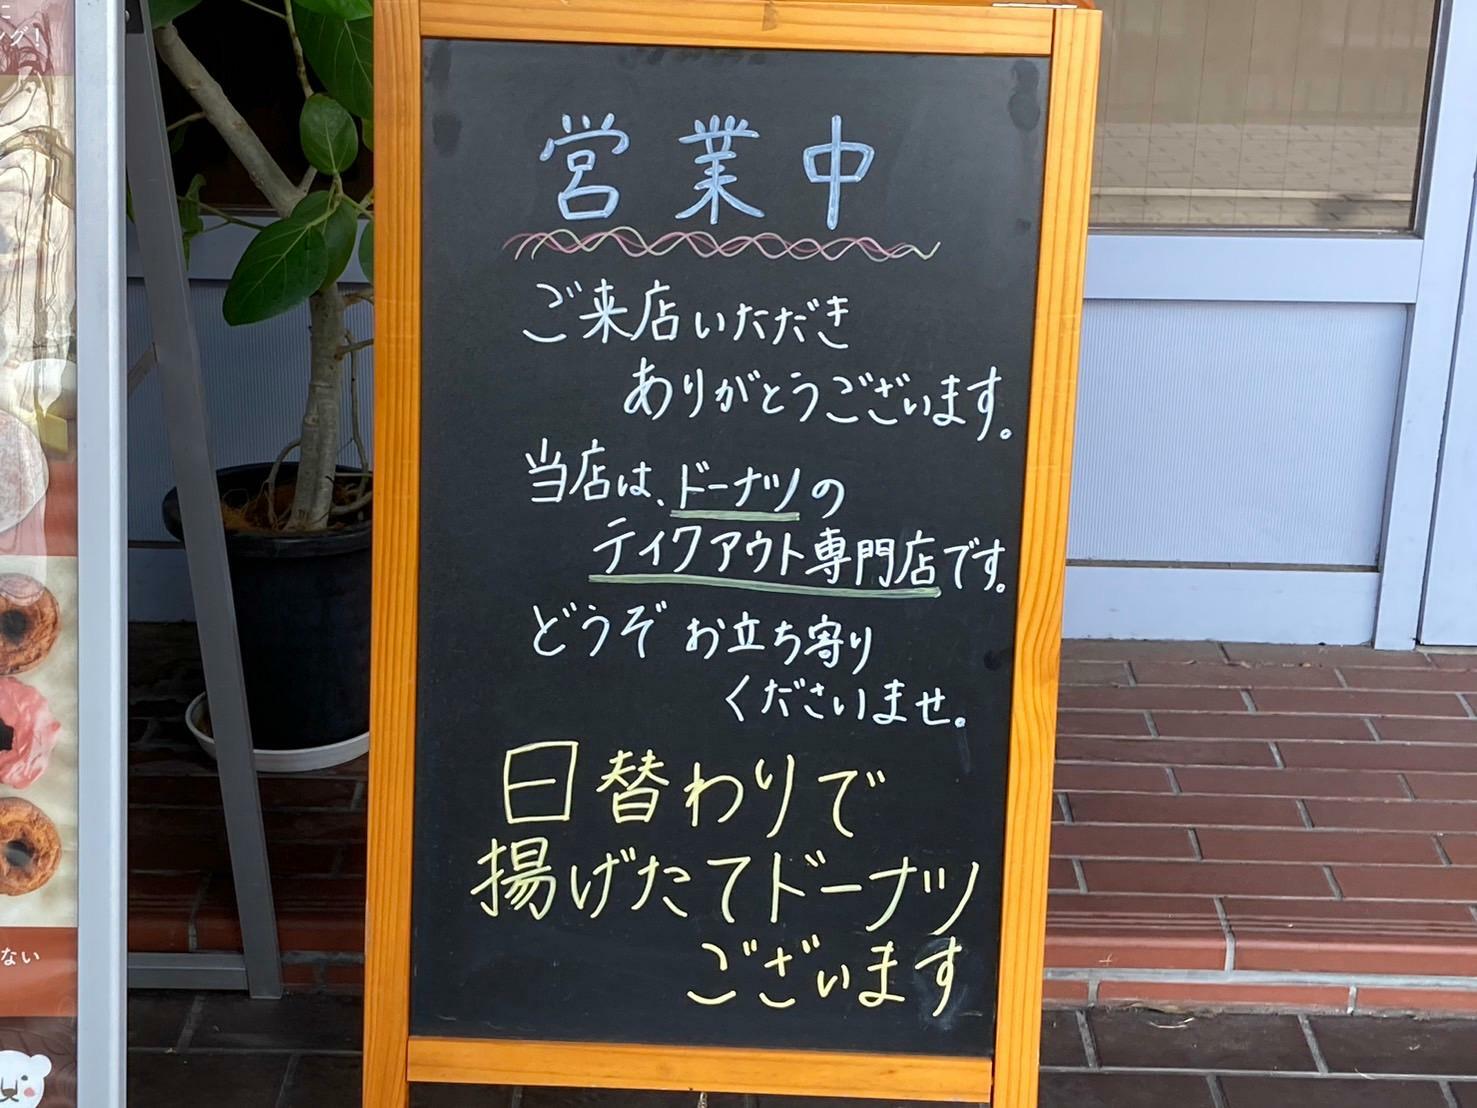 営業中
ご来店いただき
ありがとうございます。
当店は、ドーナツの
テイクアウト専門店です。
どうぞお立ち寄り
くださいませ。
日替わりで
揚げたてドーナツ
ございます
ない